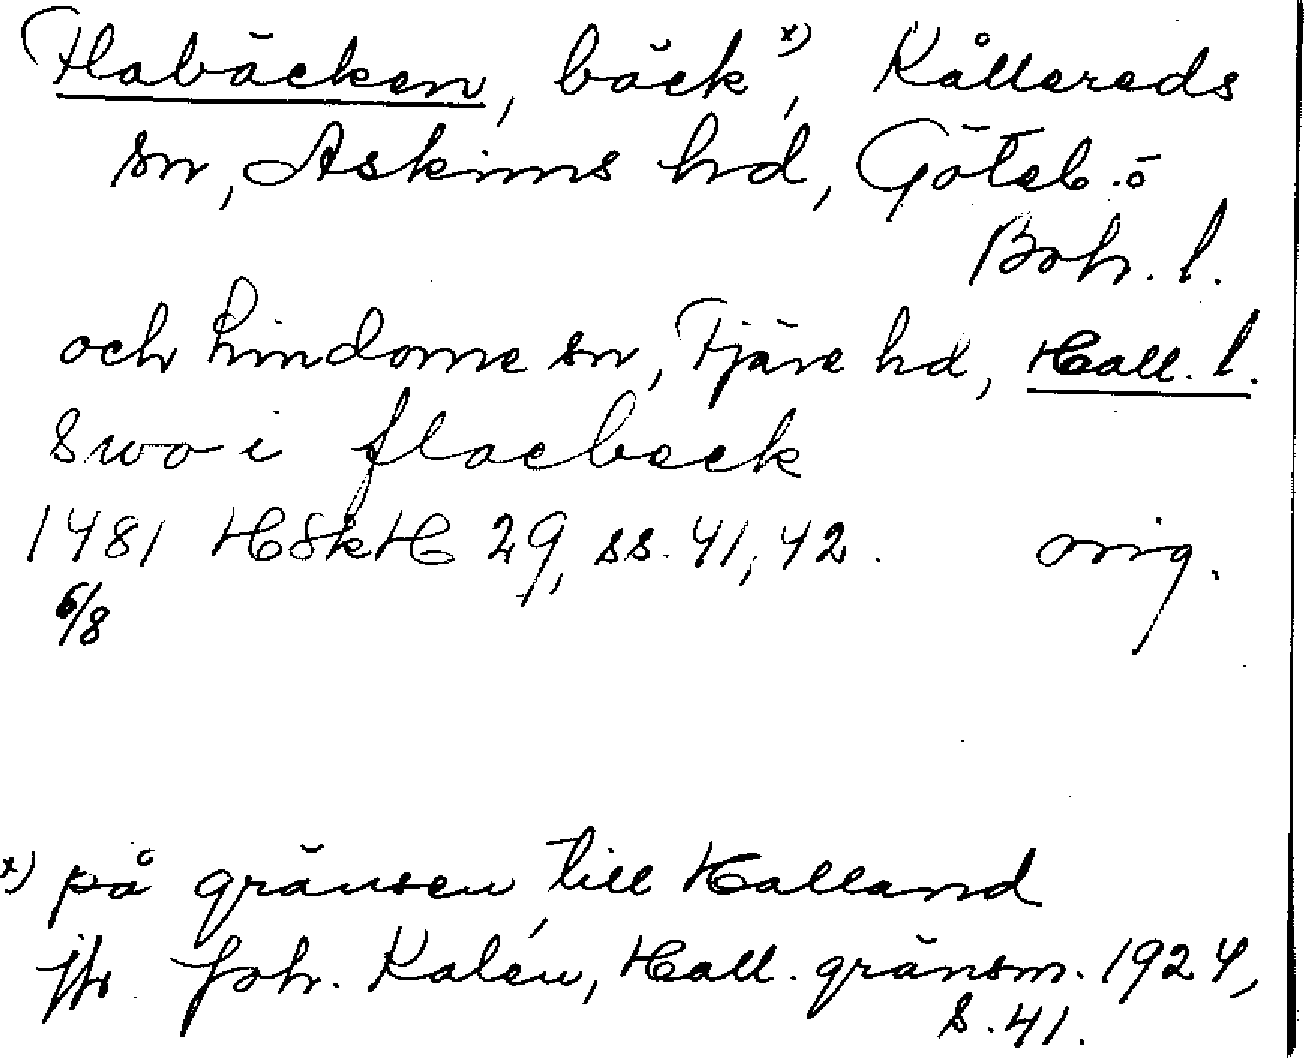 Flabäcken, bäck x), Kållereds
sn, Askims hd, Göteb. o
Boh. l.
och Lindome sn, Fjäre hd, Hall. l.
Swo i flaebeck
1481 HSkH 29, ss. 41, 42. orig.
6/8
x) på gränsen till Halland
jfr Joh. Kalén, Hall. gränsm. 1924,
s. 41.